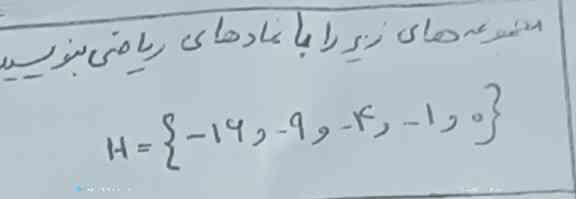 مجموعه‌های زیر را با نمادهای ریاضی بنویسید
H = {-۱۶ و -۹ و -۴ و -۱ و ۰}